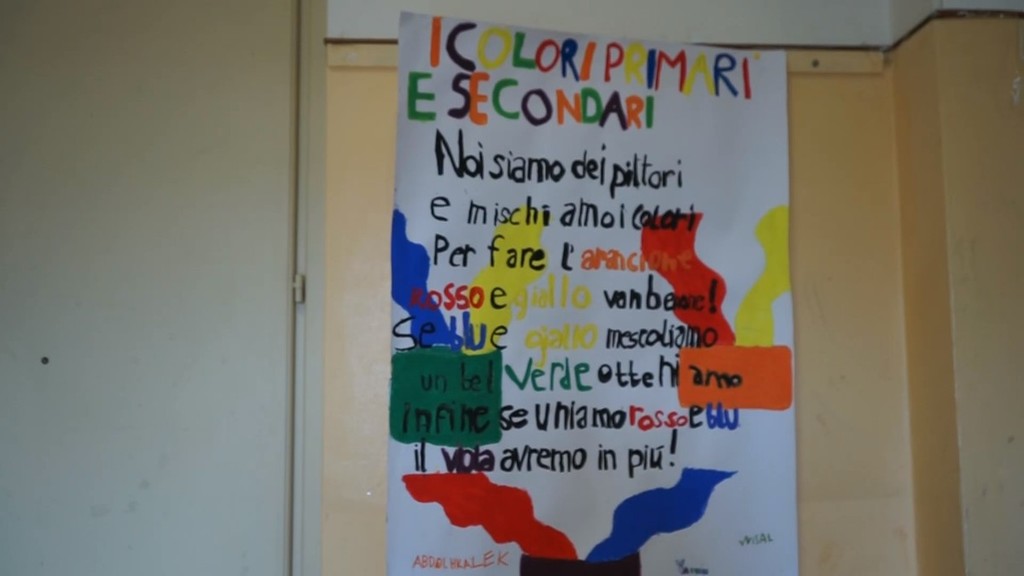 I COLORI PRIMARI
E SECONDARI
Noi siamo dei pittori
e mischiamo i colori
Per fare l'arancione
rosso e giallo van bene!
Se blu e giallo mescoliamo
un bel verde otteniamo
infine se uniamo rosso e blu
il viola avremo in più!
ABDELHKALEK